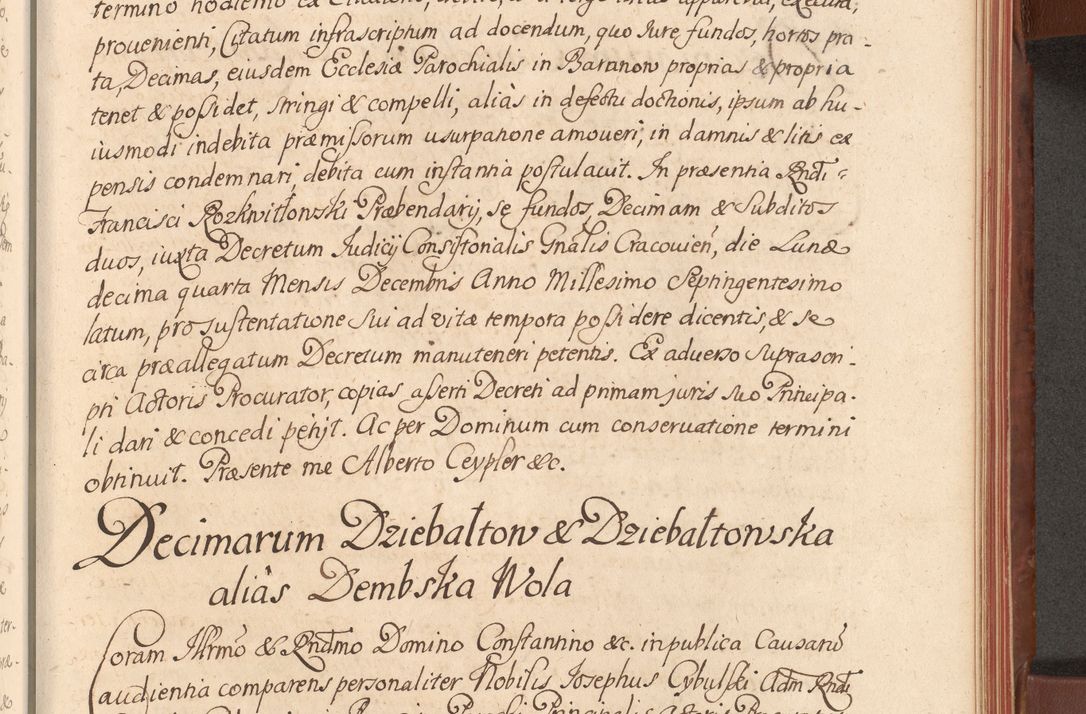 termino hodierno ex
prouenienti, Citatum infrascriptum ad docendum, quo Iure, fundos, hortos pra-
ta, Decimas, eiusdem Ecclesiæ Parochialis in Baranow proprias & propria
tenet & possidet, stringi & compelli, aliàs in defectu doctionis, ipsum ab hu-
iusmodi indebita præmissorum usurpatione amoueri, in damnis & litis ex
pensis condemnari, debita cum instantia postulauit. In præsentia Rndi
Francisci Rozkwitłowski Præbendarij, se fundos, Decimam & Subditos
duos, iuxta Decretum Iudicij Consistorialis Gnalis Cracouien, die Lunæ
decima quarta Mensis Decembris Anno Millesimo Septingentesimo
latum, pro sustentatione sui ad vitæ tempora possidere dicentis, & se
circa præallegatum Decretum manuteneri petentis. Ex aduerso suprascri-
pti Actoris Procurator, copias asserti Decreti ad primam juris suo Principa-
li dari & concedi petijt. Ac per Dominum cum conseruatione termini
obtinuit. Præsente me Alberto Ceypler &c.
Decimarum Dziebałtow & Dziebałtowska
aliàs Dembska Wola
Coram Illrmo & Rndmo Domino Constantino &c. in publica Causaru
audientia comparens personaliter Nobilis Iosephus Cybulski Adm Rndi